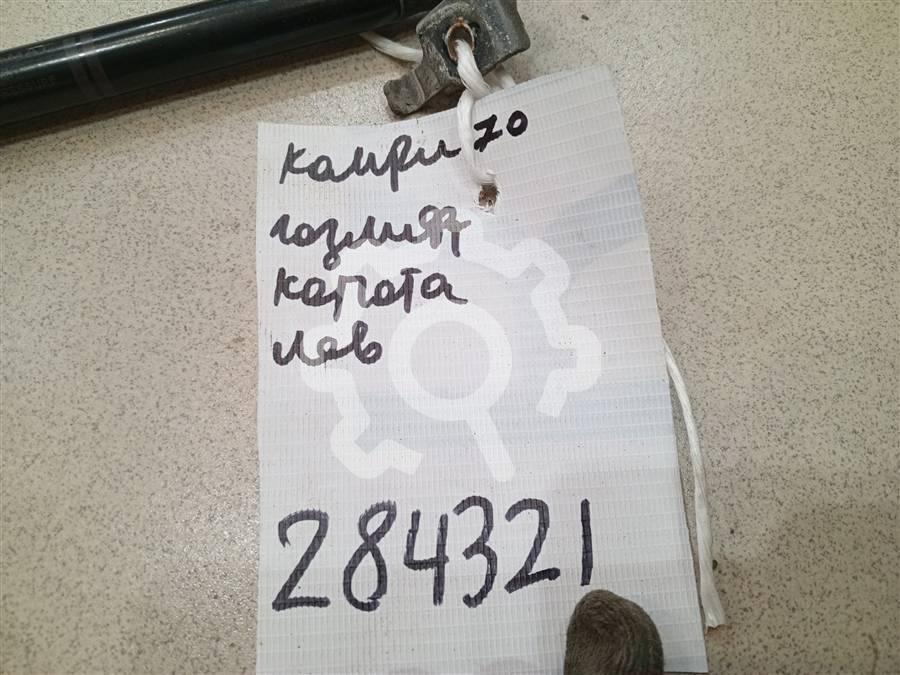 Камри 70
газлифт
капота
лев
284321